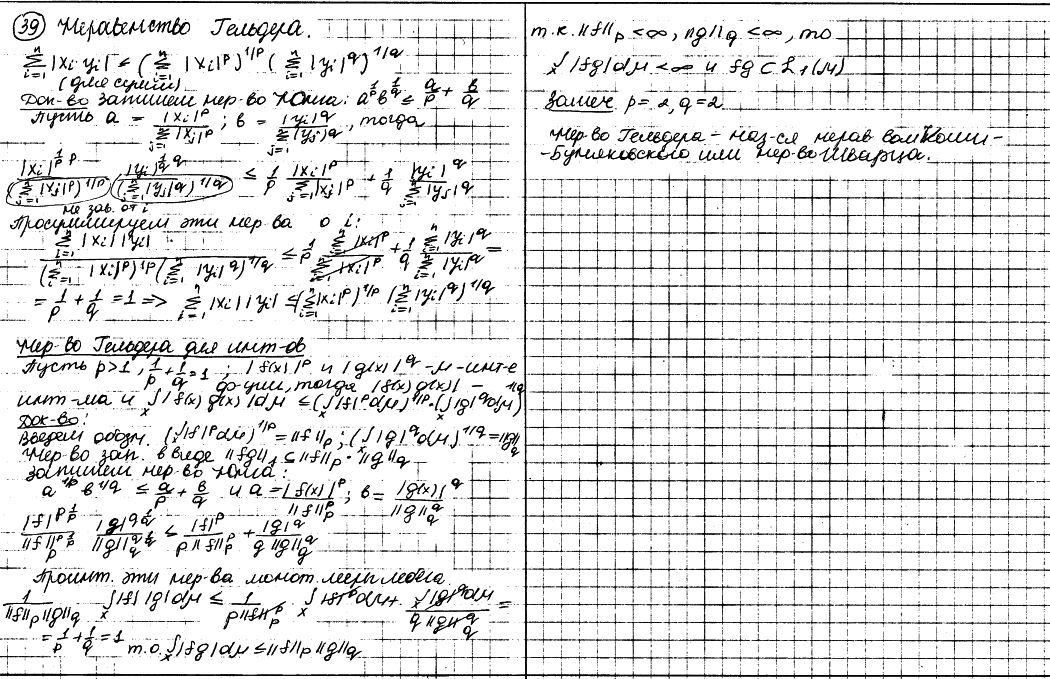 39 Неравенство Гельдера.
∑_{i=1}^{n} |x_i y_i| ≤ (∑_{i=1}^{n} |x_i|^p)^{1/p} (∑_{i=1}^{n} |y_i|^q)^{1/q}
(для сумм)
Док-во запишем нер-во Юнга: a^{1/p} b^{1/q} ≤ a/p + b/q
Пусть a = |x_i|^p / ∑_{j=1}^{n} |x_j|^p ; b = |y_i|^q / ∑_{j=1}^{n} |y_j|^q , тогда
|x_i|^{1/p p} / (∑_{j=1}^{n} |x_j|^p)^{1/p} · |y_i|^{1/q q} / (∑_{j=1}^{n} |y_j|^q)^{1/q} ≤ 1/p |x_i|^p / ∑_{j=1}^{n} |x_j|^p + 1/q |y_i|^q / ∑_{j=1}^{n} |y_j|^q
не зав. от i
Просуммируем эти нер-ва о i:
∑_{i=1}^{n} |x_i| |y_i| / (∑_{i=1}^{n} |x_i|^p)^{1/p} (∑_{i=1}^{n} |y_i|^q)^{1/q} ≤ 1/p ∑_{i=1}^{n} |x_i|^p / ∑_{i=1}^{n} |x_i|^p + 1/q ∑_{i=1}^{n} |y_i|^q / ∑_{i=1}^{n} |y_i|^q =
= 1/p + 1/q = 1 => ∑_{i=1}^{n} |x_i| |y_i| ≤ (∑_{i=1}^{n} |x_i|^p)^{1/p} (∑_{i=1}^{n} |y_i|^q)^{1/q}
Нер-во Гельдера для инт-ов
Пусть p>1, 1/p + 1/q = 1 ; |f(x)|^p и |g(x)|^q - μ-инт-е
ф-уии, тогда |f(x)g(x)| -
инт-ма и ∫_x |f(x)g(x)|dμ ≤ (∫_x |f|^p dμ)^{1/p} · (∫_x |g|^q dμ)^{1/q}
Док-во:
Введем обозн. (∫_x |f|^p dμ)^{1/p} = ||f||_p ; (∫_x |g|^q dμ)^{1/q} = ||g||_q
Нер-во зап. в виде ||fg||_1 ≤ ||f||_p · ||g||_q
Запишем нер-во Юнга:
a^{1/p} b^{1/q} ≤ a/p + b/q и a = |f(x)|^p / ||f||_p^p ; b = |g(x)|^q / ||g||_q^q
|f|^{p 1/p} / ||f||_p^{p 1/p} · |g|^{q 1/q} / ||g||_q^{q 1/q} ≤ |f|^p / p||f||_p^p + |g|^q / q||g||_q^q
Проинт. эти нер-ва монот.
1 / ||f||_p ||g||_q ∫_x |f| |g| dμ ≤ 1 / p||f||_p^p ∫_x |f|^p dμ + ∫_x |g|^q dμ / q||g||_q^q =
= 1/p + 1/q = 1
т.о. ∫_x |fg|dμ ≤ ||f||_p ||g||_q
т.к. ||f||_p < ∞, ||g||_q < ∞, то
∫_x |fg|dμ < ∞ и fg ⊂ L_1(μ)
Замеч p = 2, q = 2
Нер-во Гельдера - наз-ся нерав вом Коши-
-Буняковского или нер-во Шварца.